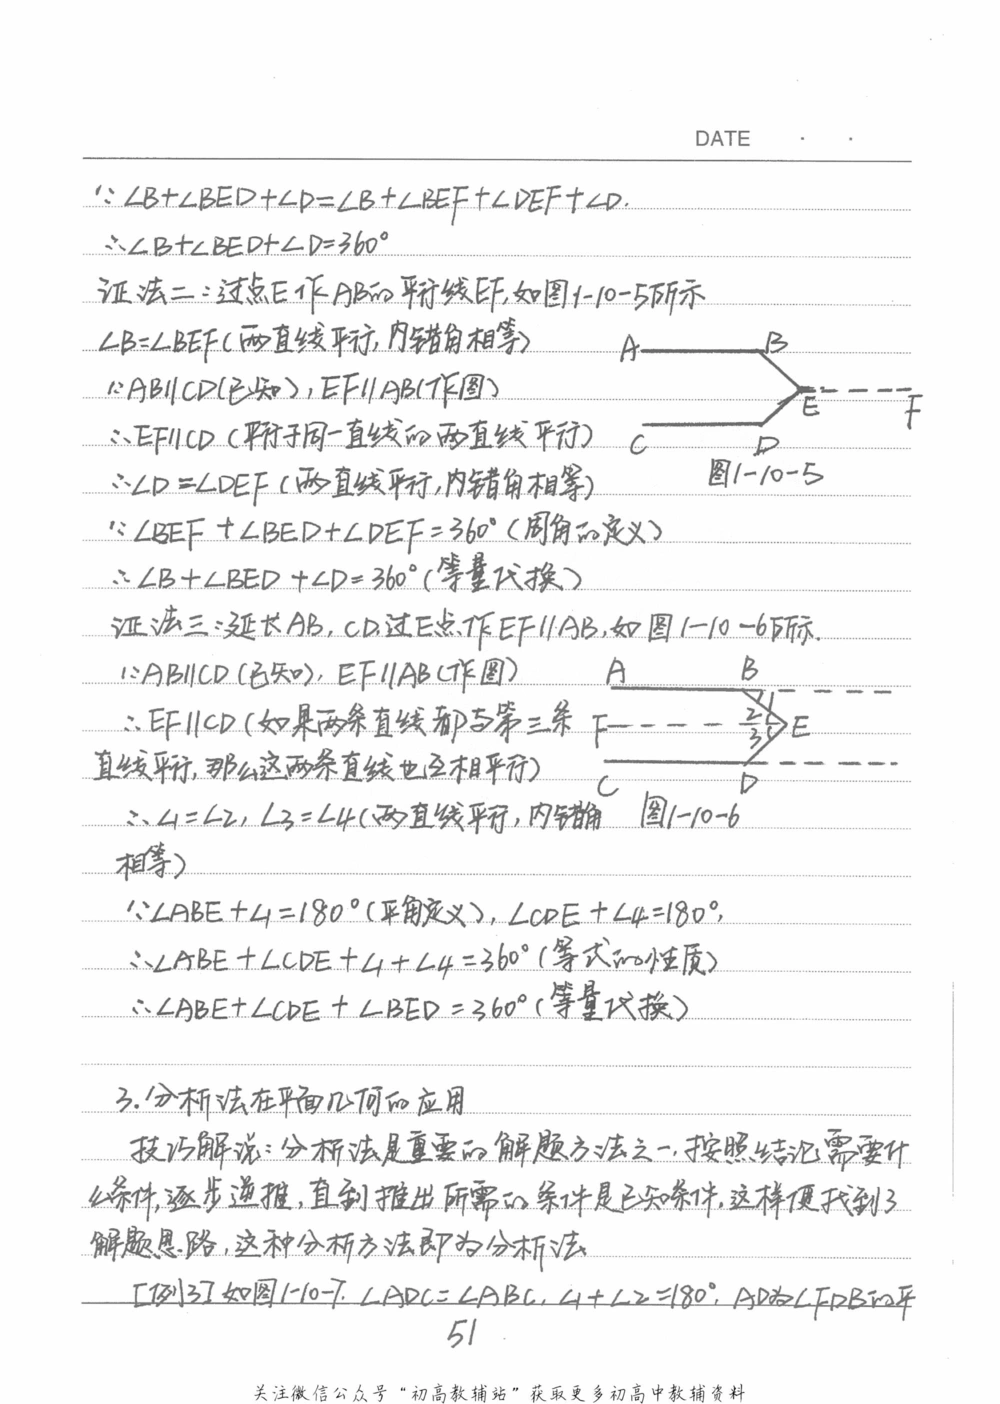 DATE . .
∵∠B+∠BED+∠D=∠B+∠BEF+∠DEF+∠D.
∴∠B+∠BED+∠D=360°
证法二:过点E作AB的平行线EF,如图1-10-5所示
∠B=∠BEF(两直线平行,内错角相等)
∵AB∥CD(已知),EF∥AB(作图)
∴EF∥CD(平行于同一直线的两直线平行)
∴∠D=∠DEF(两直线平行,内错角相等)
A B
E F
C D
图1-10-5
∵∠BEF+∠BED+∠DEF=360°(周角的定义)
∴∠B+∠BED+∠D=360°(等量代换)
证法三:延长AB,CD,过E点作EF∥AB,如图1-10-6所示.
∵AB∥CD(已知),EF∥AB(作图)
∴EF∥CD(如果两条直线都与第三条
直线平行,那么这两条直线也互相平行)
∴∠1=∠2,∠3=∠4(两直线平行,内错角
相等)
A B
1
F 2 E
3
C D
图1-10-6
∵∠ABE+∠1=180°(平角定义),∠CDE+∠4=180°,
∴∠ABE+∠CDE+∠1+∠4=360°(等式的性质)
∴∠ABE+∠CDE+∠BED=360°(等量代换)
3.分析法在平面几何的应用
技巧解说:分析法是重要的解题方法之一,按照结论需要什
么条件,逐步递推,直到推出所需的条件是已知条件,这样便找到了
解题思路,这种分析方法即为分析法
[例3]如图1-10-7,∠ADC=∠ABC,∠1+∠2=180°,AD为∠FDB的平
51
关注微信公众号“初高教辅站”获取更多初高中教辅资料